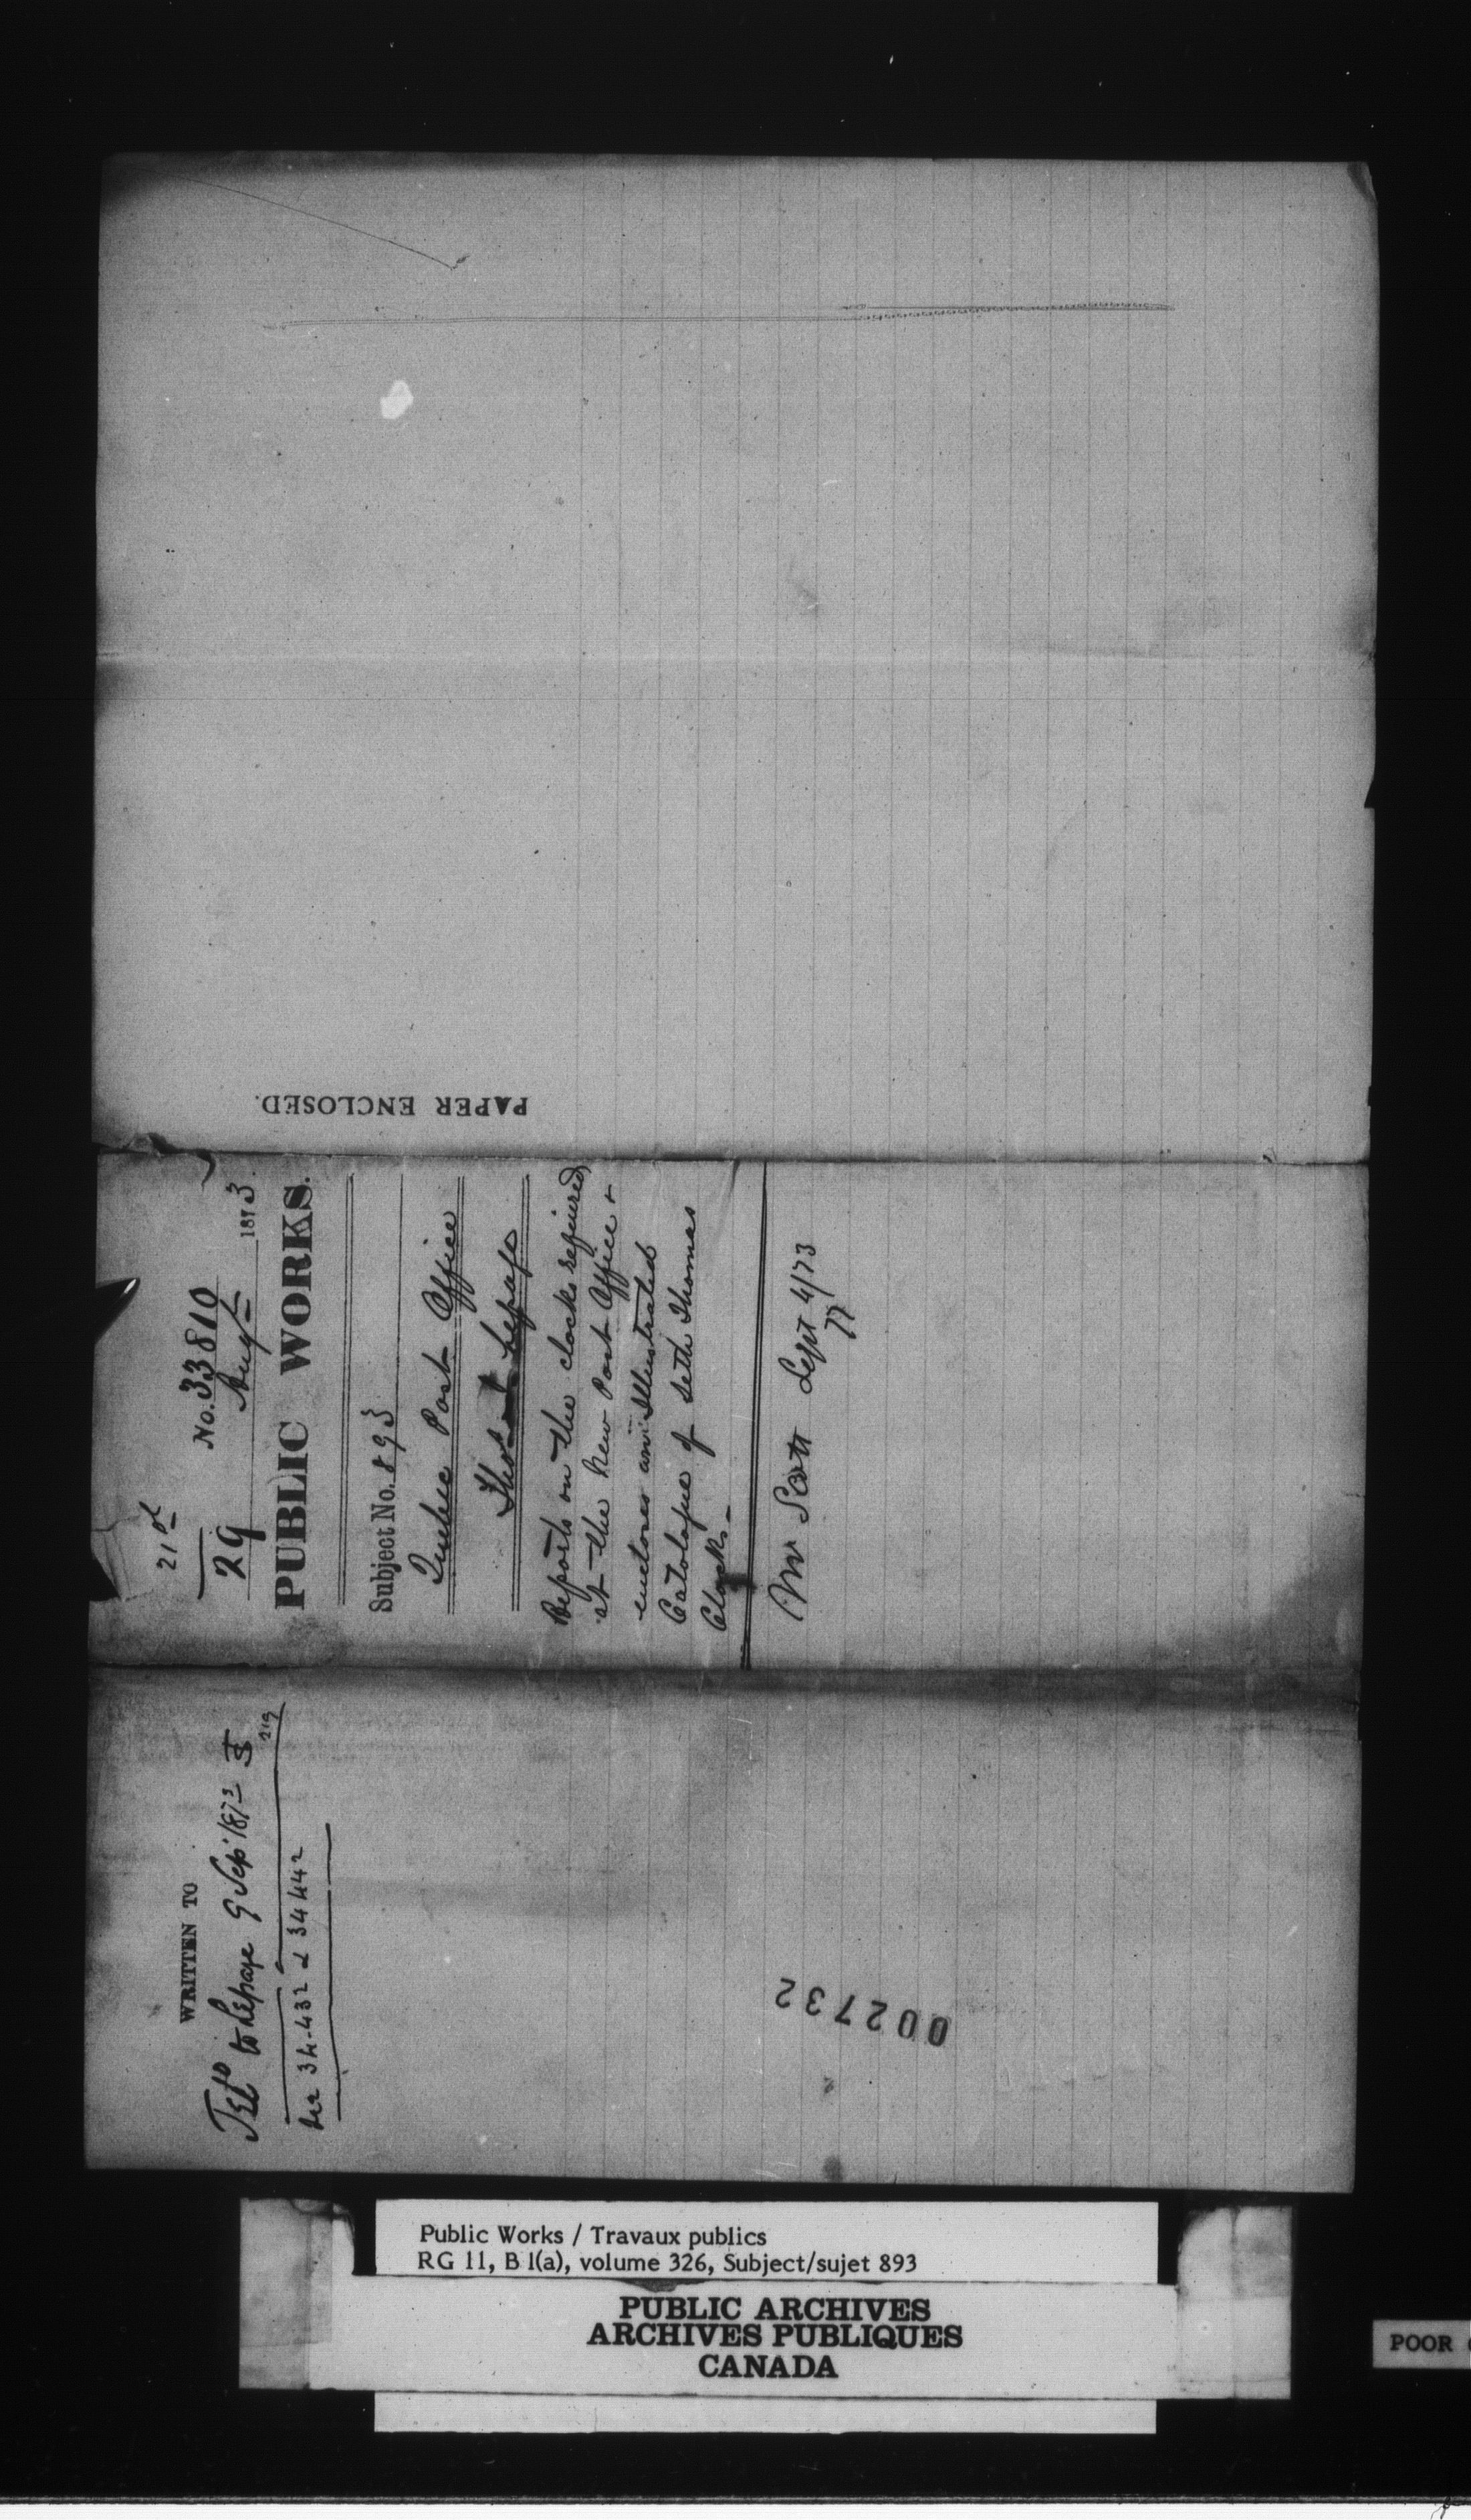 PAPER ENCLOSED.
21st
No. 33810
29 Augt 1873.
PUBLIC WORKS.
Subject No. 893
Quebec Post Office
Thos Lepage
Reports on the clocks required
at the New Post Office &
encloses an Illustrated
Catalogue of Seth Thomas
Clocks.
Mr Scott Sept 4/73
WRITTEN TO
to Lepage 9 Sep 1873
219
See 34.432 & 34442
002732
Public Works / Travaux publics
RG 11, B 1(a), volume 326, Subject/sujet 893
PUBLIC ARCHIVES
ARCHIVES PUBLIQUES
CANADA
POOR